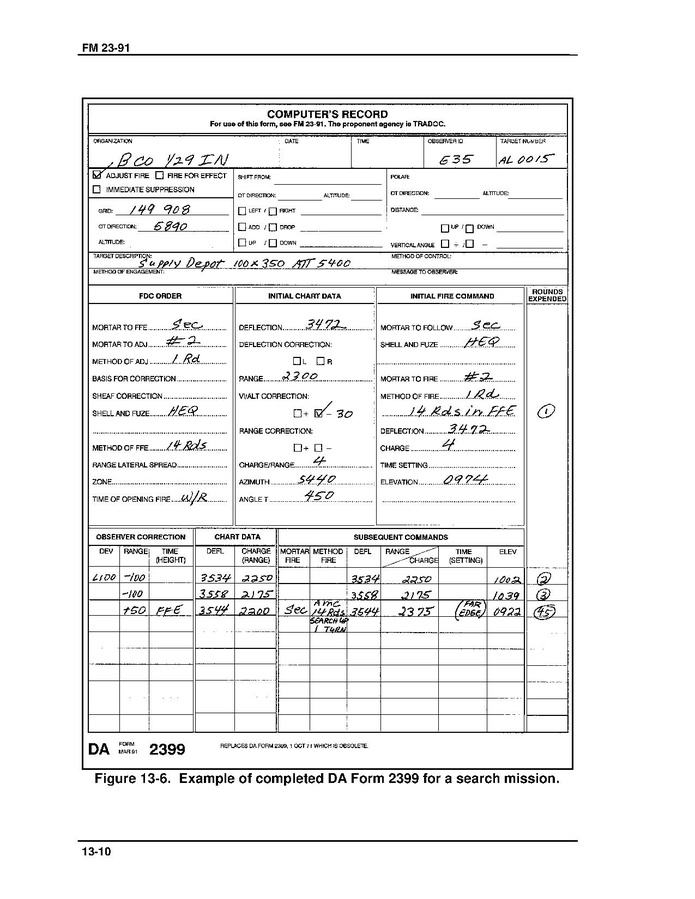 FM 23-91
COMPUTER'S RECORD
For use of this form, see FM 23-91. The proponent agency is TRADOC.
ORGANIZATION DATE TIME OBSERVER ID TARGET NUMBER
B CO 1/29 IN E35 AL0015
ADJUST FIRE FIRE FOR EFFECT SHIFT FROM: POLAR:
IMMEDIATE SUPPRESSION OT DIRECTION: ALTITUDE: OT DIRECTION: ALTITUDE:
GRID: 149 908 LEFT / RIGHT DISTANCE:
OT DIRECTION: 5890 ADD / DROP UP / DOWN
ALTITUDE: UP / DOWN VERTICAL ANGLE + / -
TARGET DESCRIPTION: METHOD OF CONTROL:
Supply Depot 100 x 350 ATT 5400
METHOD OF ENGAGEMENT: MESSAGE TO OBSERVER:
FDC ORDER INITIAL CHART DATA INITIAL FIRE COMMAND ROUNDS EXPENDED
MORTAR TO FFE Sec DEFLECTION 3472 MORTAR TO FOLLOW Sec
MORTAR TO ADJ #2 DEFLECTION CORRECTION: SHELL AND FUZE HEQ
METHOD OF ADJ 1 Rd L R
BASIS FOR CORRECTION RANGE 2300 MORTAR TO FIRE #2
SHEAF CORRECTION V/ALT CORRECTION: METHOD OF FIRE 1 Rd
SHELL AND FUZE HEQ + - 30 14 Rds in FFE 1
RANGE CORRECTION: DEFLECTION 3472
METHOD OF FFE 14 Rds + - CHARGE 4
RANGE LATERAL SPREAD CHARGE/RANGE 4 TIME SETTING
ZONE AZIMUTH 5440 ELEVATION 0974
TIME OF OPENING FIRE W/R ANGLE T 450
OBSERVER CORRECTION CHART DATA SUBSEQUENT COMMANDS
DEV RANGE TIME (HEIGHT) DEFL CHARGE (RANGE) MORTAR FIRE METHOD FIRE DEFL RANGE CHARGE TIME (SETTING) ELEV
L100 -100 3534 2250 3534 2250 1002 2
-100 3558 2175 3558 2175 1039 3
+50 FFE 3544 2200 Sec AMC 14 Rds 3544 2375 (FAR EDGE) 0922 45
SEARCH UP
1 TURN
DA FORM MAR 91 2399 REPLACES DA FORM 2399, 1 OCT 71 WHICH IS OBSOLETE.
Figure 13-6. Example of completed DA Form 2399 for a search mission.
13-10